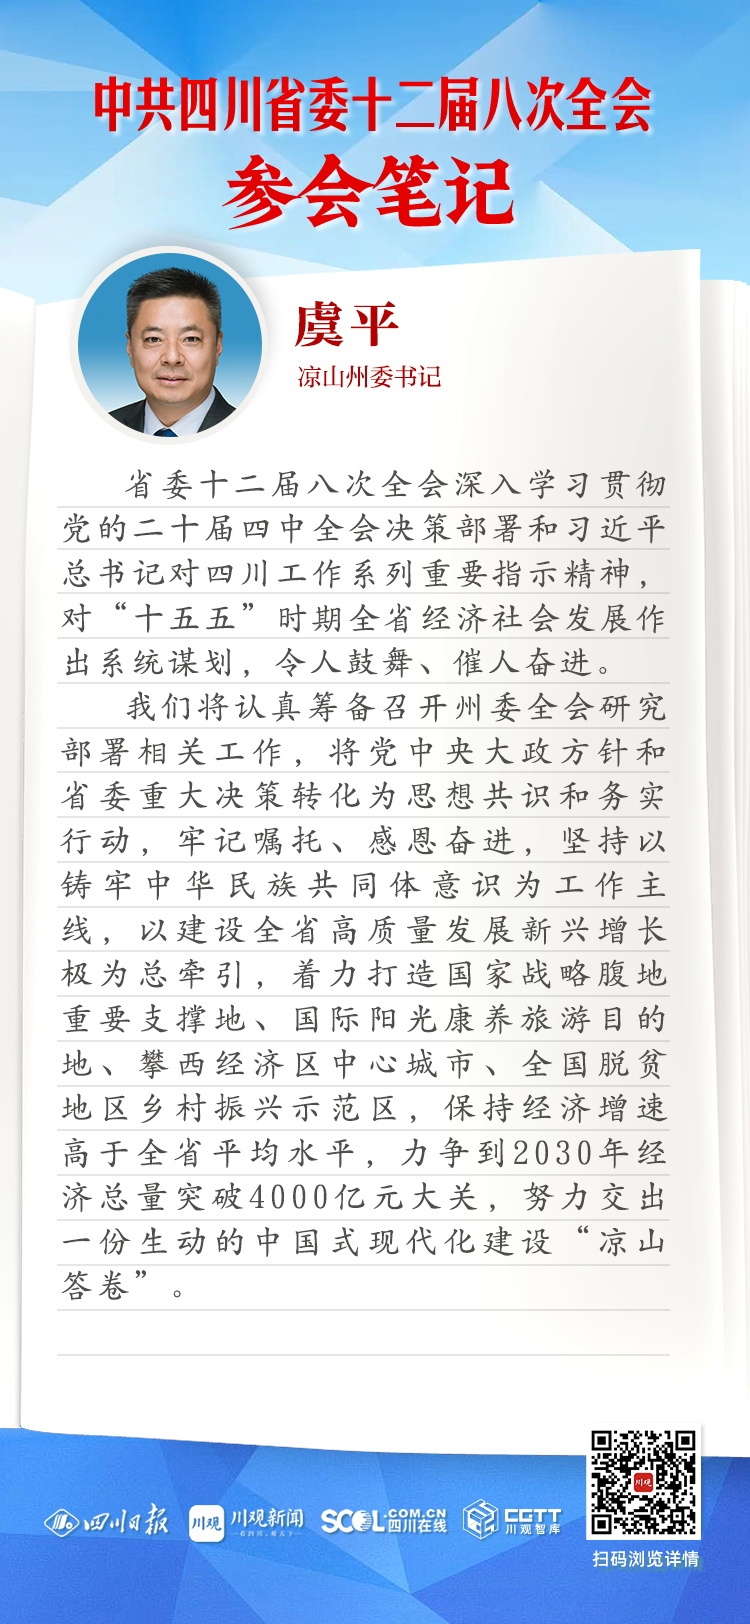 中共四川省委十二届八次全会
参会笔记
虞平
凉山州委书记
省委十二届八次全会深入学习贯彻
党的二十届四中全会决策部署和习近平
总书记对四川工作系列重要指示精神，
对“十五五”时期全省经济社会发展作
出系统谋划，令人鼓舞、催人奋进。
我们将认真筹备召开州委全会研究
部署相关工作，将党中央大政方针和
省委重大决策转化为思想共识和务实
行动，牢记嘱托、感恩奋进，坚持以
铸牢中华民族共同体意识为工作主
线，以建设全省高质量发展新兴增长
极为总牵引，着力打造国家战略腹地
重要支撑地、国际阳光康养旅游目的
地、攀西经济区中心城市、全国脱贫
地区乡村振兴示范区，保持经济增速
高于全省平均水平，力争到2030年经
济总量突破4000亿元大关，努力交出
一份生动的中国式现代化建设“凉山
答卷”。
川观
四川日报
川观
川观新闻
SCOL.COM.CN
四川在线
CGTT
川观智库
扫码浏览详情